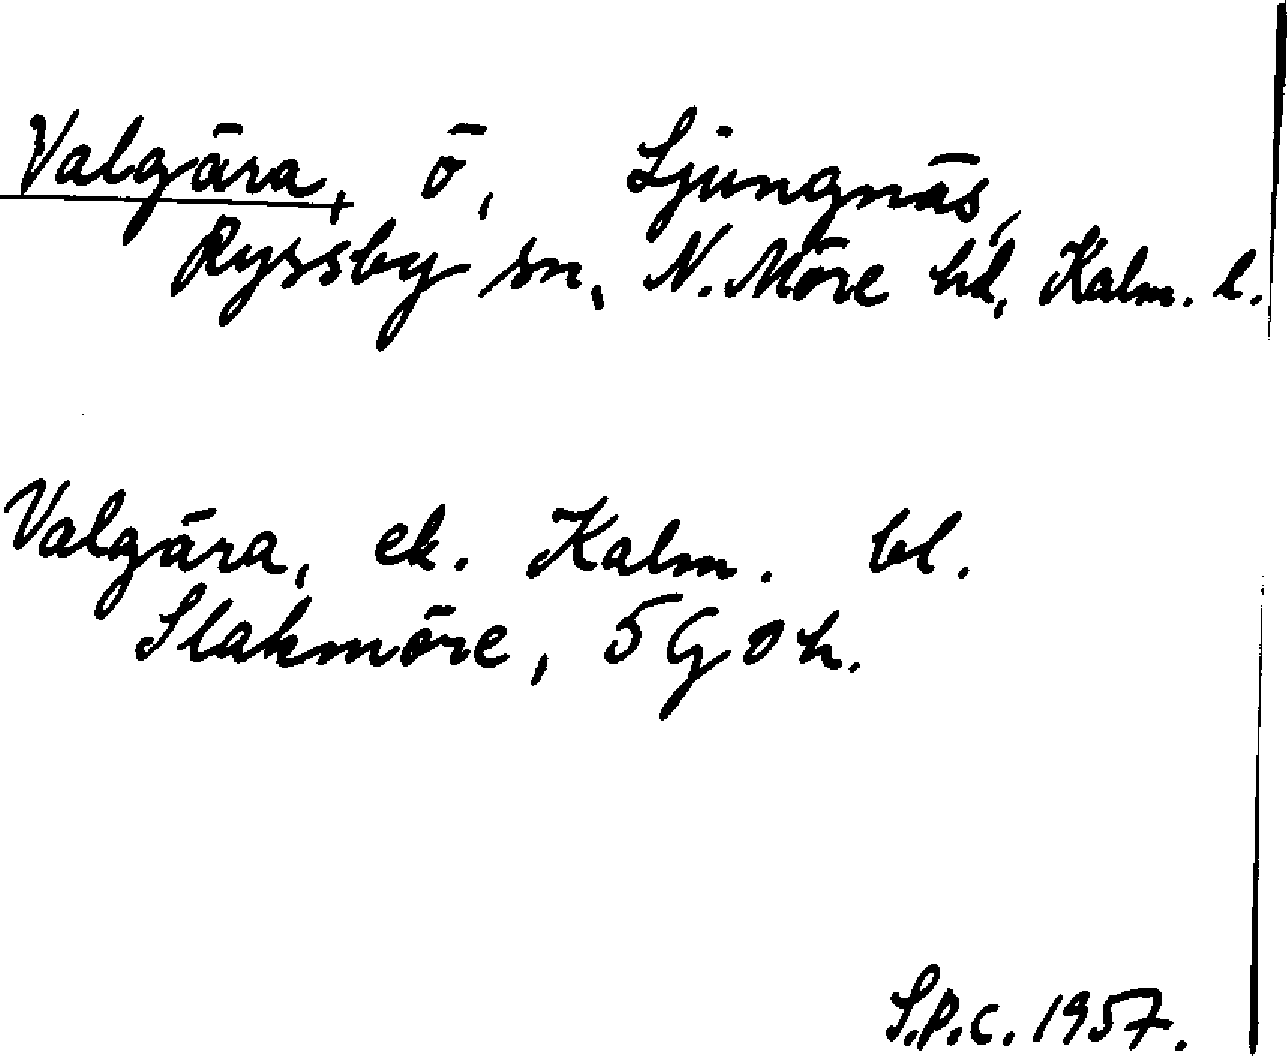 Valgära, ö, Ljungnäs,
Ryssby sn, N. Möre hd, Kalm. l.
Valgära, ek. Kalm. bl.
Slakmöre, 5G0h.
S.P.C. 1957.